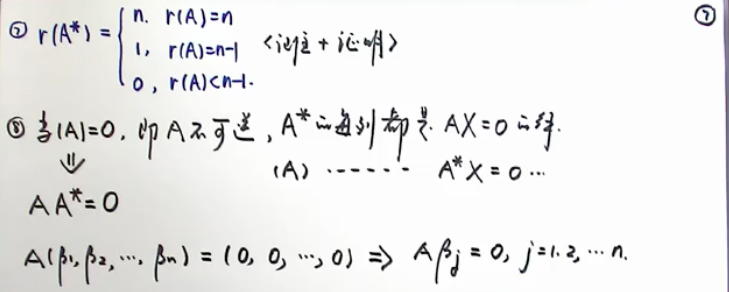 ⑦
⑦ r(A*) = { n. r(A)=n
1, r(A)=n-1 <记住+证明>
0, r(A)<n-1.
⑧ 当|A|=0, 即A不可逆, A*的每列都是 AX=0的解.
⇓ (A) ······ A*X=0 ···
AA*=0
A(β₁, β₂, ···, βₙ) = (0, 0, ···, 0) ⇒ Aβⱼ = 0, j=1.2, ··· n.